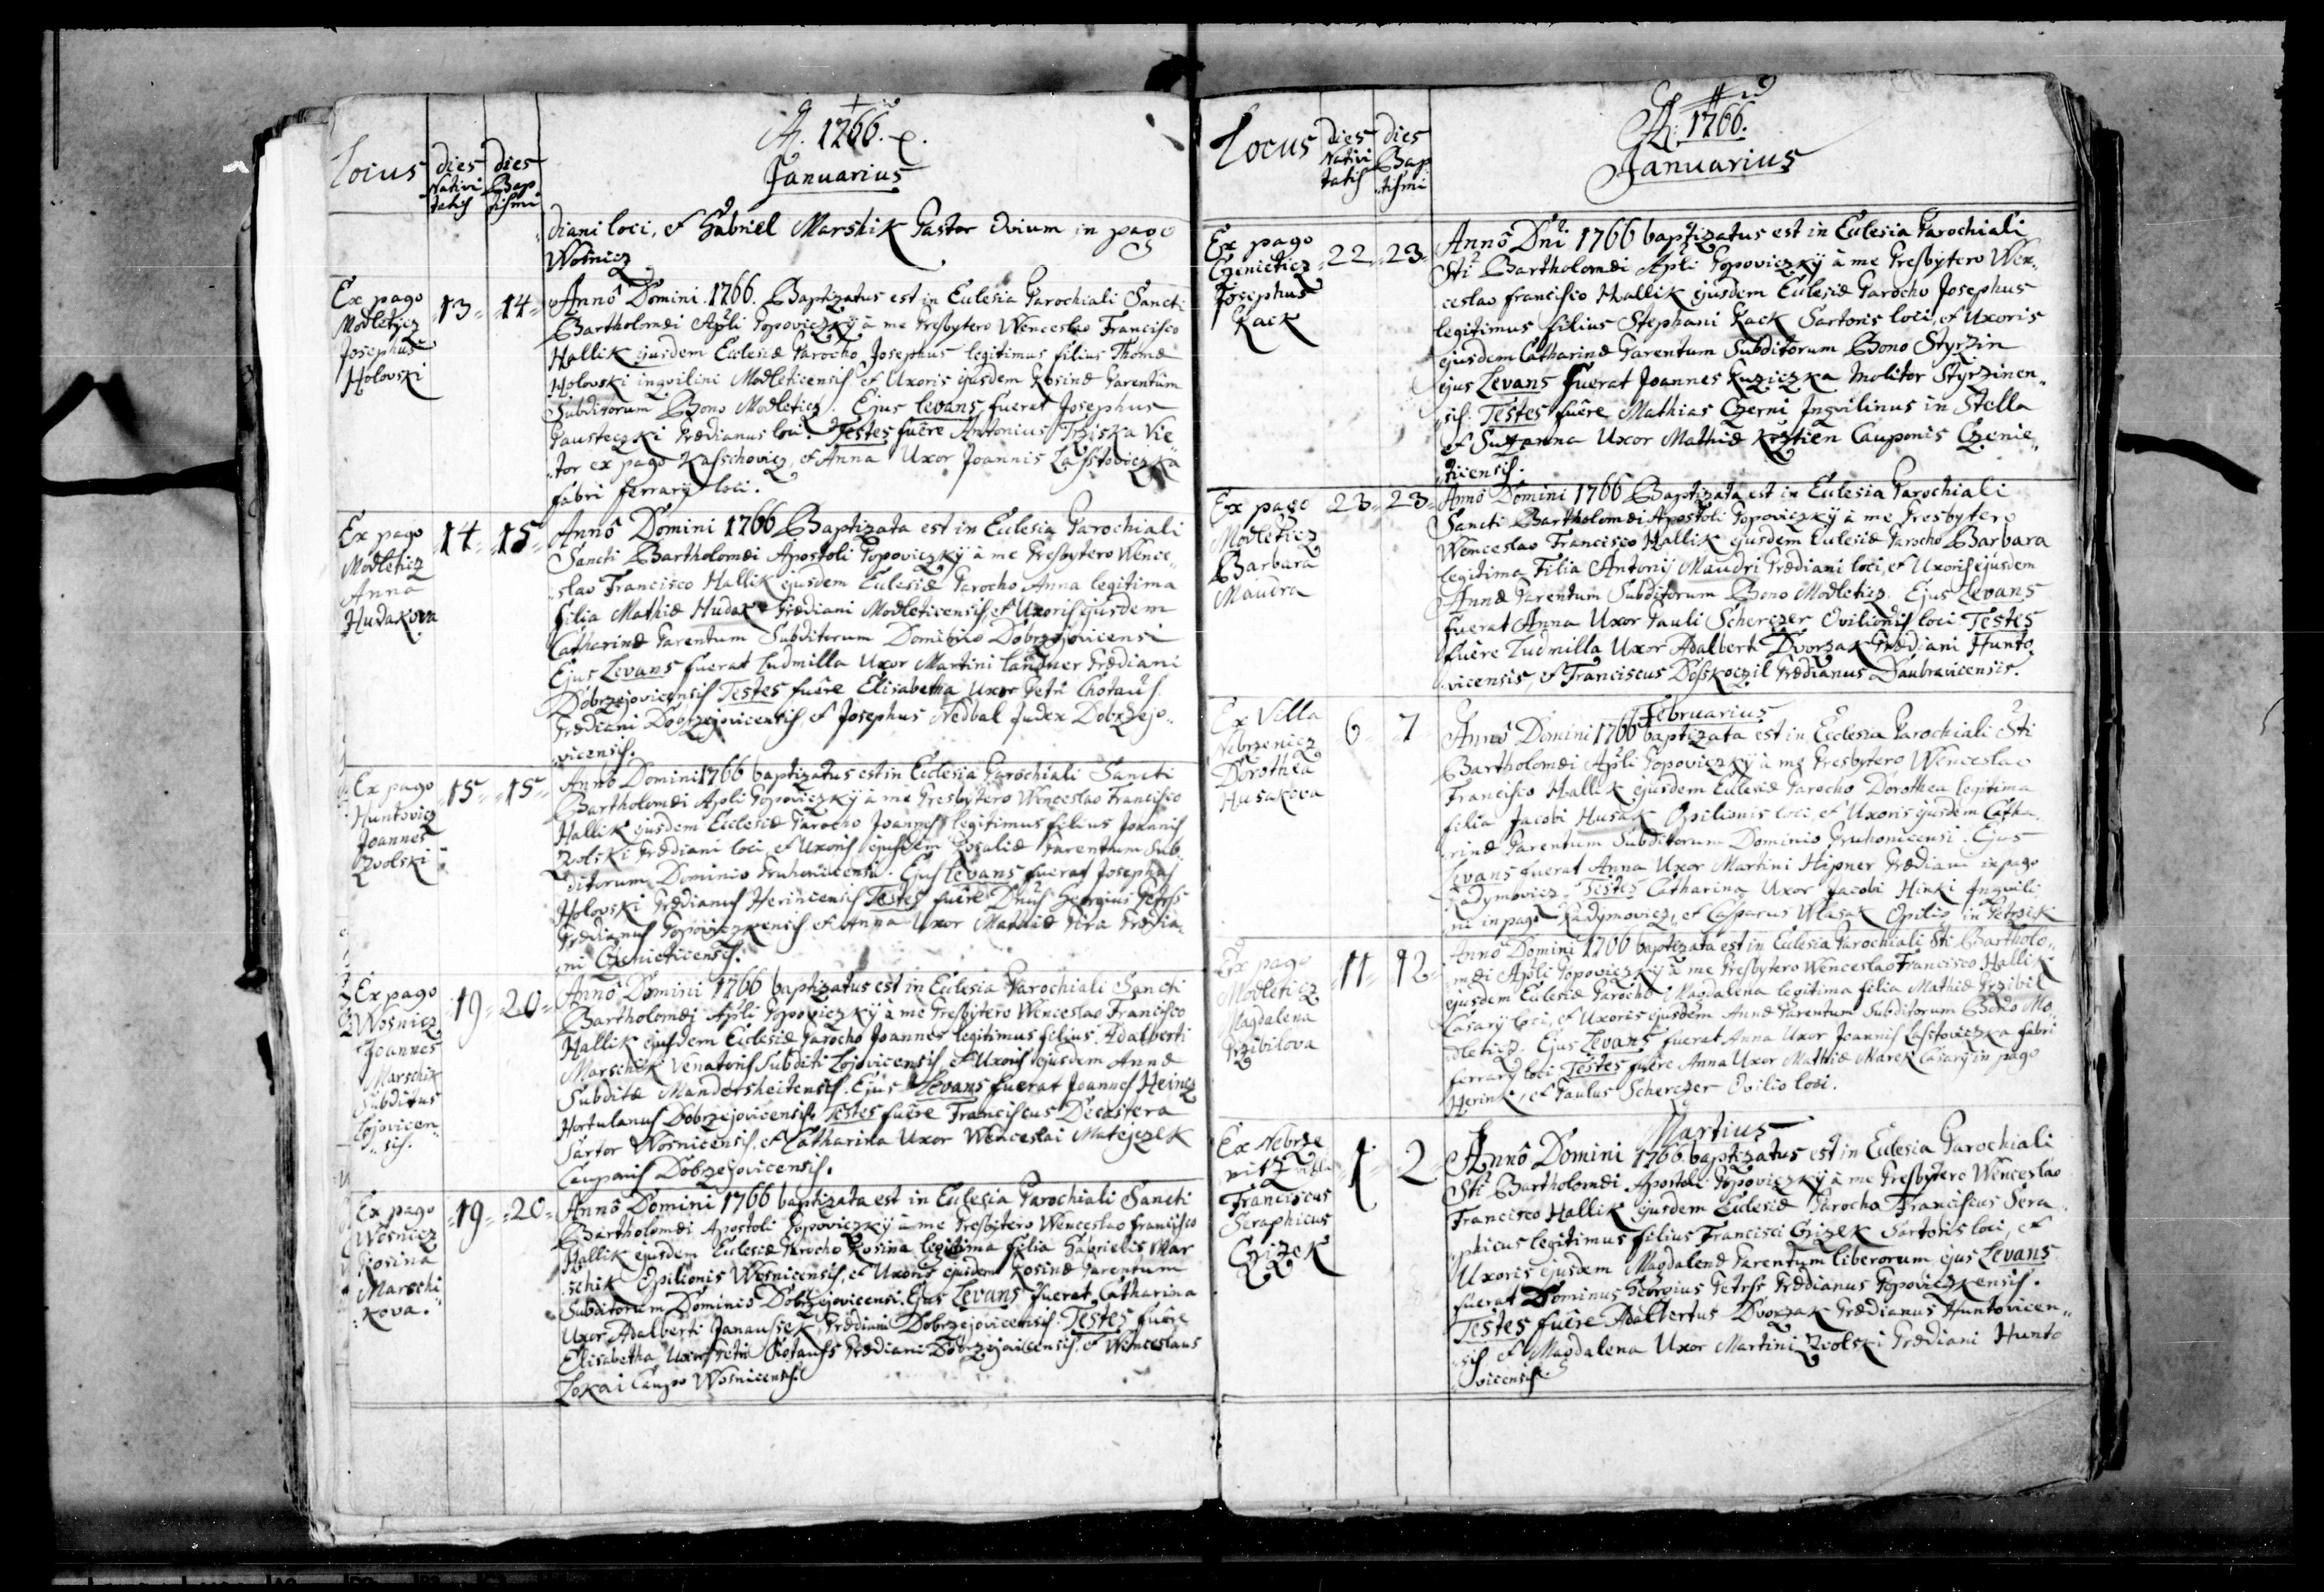 A. 1766.
Januarius
Locus
dies Nativitatis
dies Baptismi
diani loci, et Gabriel Marshik Pastor Ovium in pago
Wosnicz
Ex pago
Modleticz
Josephus
Holovski
13
14
Annô Domini 1766. Baptizatus est in Eulesia Parochiali Sancti
Bartholomæi Apli Popoviczky à me Presbytero Wenceslao Francisco
Hallik ejusdem Ecclesiæ Parocho Josephus legitimus filius Thomæ
Holovski inqvilini Modleticensis et Uxoris ejusdem Rosinæ Parentum
Subditorum Bono Modleticz. Ejus levans fuerat Josephus
Pausteczki Prædianus loci. Testes fuêre Antonius Trziska Vie
tor ex pago Kasschovicz, et Anna Uxor Joannis Lasstoviczka
fabri ferrarÿ loci.
Ex pago
Modleticz
Anna
Hudakova
14
15
Annô Domini 1766 Baptizata est in Eulesia Parochiali
Sancti Bartholomæi Apostoli Popoviczkÿ à me Presbytero Wence„
„slao Francisco Hallik ejusdem Eulesiæ Parocho Anna legitima
filia Mathiæ Hudak Prædiani Modleticensis, et Uxoris ejusdem
Catharinæ Parentum Subditorum Dominio Dobrzejovicensi
Ejus Levans fuerat Ludmilla Uxor Martini Landner Prædiani
Dobrzejovicensis Testes fuêre Elisabetha Uxor Petri Chotaus
Prædiani Dobrzejovicensis, et Josephus Nedbal Judex Dobrzejo„
vicensis.
Ex pago
Huntovicz
Joannes
Zvolski
15
15
Annô Domini 1766 baptizatus est in Ecclesia Parochiali Sancti
Bartholomæi Apli Popoviczkÿ à me Presbytero Wenceslao Francisco
Hallik ejusdem Ecclesiæ Parocho Joannes legitimus filius Joannis
Zvolski Prædiani loci et Uxoris ejusdem Rosaliæ Parentum Sub„
ditorum Dominio Pruhonicensi. Ejus levans fuerat Josephus
Holovski Prædianus Herincensis Testes fuêre Dnus Georgius Petrss
Prædianus Popoviczkensis et Anna Uxor Mathiæ Prædia„
„ni Czenieticensis.
Ex pago
Wosnicz
Joannes
Marschik
Subditus
Lojovicen„
„sis.
19
20
Annô Domini 1766 baptizatus est in Eulesia Parochiali Sancti
Bartholomæi Apli Popoviczkÿ à me Presbytero Wenceslao Francisco
Hallik ejusdem Ecclesiæ Parocho Joannes legitimus filius Adalberti
Marschik Venatoris Subditi Lojovicensis, et Uxoris ejusdem Annæ
Subditæ Mandersheitensis. Ejus Levans fuerat Joannes Heincz
Hortulanus Dobrzejovicensis Testes fuêre Franciscus Deckstera
Sartor Wosnicensis, et Catharina Uxor Wenceslai Matejczek
Cauponis Dobrzejovicensis.
Ex pago
Wosnicz
Rosina
Marschi
kova.
19
20
Annô Domini 1766 baptizata est in Eulesia Parochiali Sancti
Bartholomæi Apostoli Popoviczkÿ à me Presbitero Wenceslao Francisco
Hallik ejusdem Eulesiæ Parocho Rosina legitima filia Gabrielis Mar
„schik Opilionis Wosnicensis, et Uxoris ejusdem Rosinæ Parentum
Subditorum Dominio Dobrzejovicensi. Ejus Levans fuerat Catharina
Uxor Adalberti Janaussek Prædiani Dobrzejovicensis. Testes fuêre
Elisabetha Uxor Petri Chotauss Prædiani Dobrzejovicensis, et Wenceslaus
Lokai Caupo Wosnicensis.
A. 1766.
Januarius
Locus
dies Nativitatis
dies Baptismi
Ex pago
Czenieticz
Josephus
Kack
22
23
Annô Dni 1766 baptizatus est in Eulesia Parochiali
Sti Bartholomæi Apli Popoviczkÿ à me Presbytero Wen„
ceslao francisco Hallik ejusdem Eulesiæ Parocho Josephus
legitimus filius Stephani Kack Sartoris loci, et Uxoris
ejusdem Catharinæ Parentum Subditorum Bono Styrzin
ejus Levans fuerat Joannes Ruziczka Molitor Styrzinen„
sis. Testes fuêre Mathias Czerni Inqvilinus in Stella
et Suzanna Uxor Mathiæ Krztien Cauponis Czenie„
ticensis.
Ex pago
Modleticz
Barbara
Maudra
23
23
Annô Domini 1766 Baptizata est in Eulesia Parochiali
Sancti Bartholomæi Apostoli Popoviczkÿ à me Presbytero
Wenceslao Francisco Hallik ejusdem Eulesiæ Parocho Barbara
legitima Filia Antonij Maudri Prædiani loci, et Uxoris ejusdem
Annæ Parentum Subditorum Bono Modleticz. Ejus Levans
fuerat Anna Uxor Pauli Scherczer Ovilionis loci. Testes
fuêre Ludmilla Uxor Adalberti Dvorzak Prædiani Hunto
vicensis, et Franciscus Dosskoczil Prædianus Daubravicensis.
Februarius
Ex Villa
Nebrzenicz
Dorothea
Husakova
6
7
Annô Domini 1766 baptizata est in Ecclesia Parochiali Sti
Bartholomæi Apli Popoviczkÿ à me Presbytero Wenceslao
Francisco Hallik ejusdem Eulesiæ Parocho Dorothea legitima
filia Jacobi Husak Opilionis loci, et Uxoris ejusdem Catha„
„rinæ Parentum Subditorum Dominio Pruhonicensi. Ejus
Levans fuerat Anna Uxor Martini Hipner Prædiani ex pago
Radymovicz. Testes Catharina Uxor Jacobi Hinki Inqvili
ni in pago Radymovicz, et Casparus Wlasak Opilio in Petrzik
Ex pago
Modleticz
Magdalena
Przibilova
11
12
Annô Domini 1766 baptizata est in Eulesia Parochiali Sti Bartholo„
mæi Apli Popoviczkÿ à me Presbytero Wenceslao Francisco Hallik
ejusdem Eulesiæ Parocho Magdalena legitima filia Mathiæ Przibil
Casarÿ loci, et Uxoris ejusdem Annæ Parentum Subditorum Bono Mo„
dleticz. Ejus Levans fuerat Anna Uxor Joannis Lasstoviczka fabri
ferrarÿ loci Testes fuêre Anna Uxor Mathiæ Marek Casarÿ in pago
Herink, et Paulus Scherczer Ovilio loci.
Martius
Ex Nebrze
nicz villa
Franciscus
Seraphicus
Czizek
1
2
Annô Domini 1766 baptizatus est in Eulesia Parochiali
Sti Bartholomæi Apostoli Popoviczkÿ à me Presbytero Wenceslao
Francisco Hallik ejusdem Eulesiæ Parocho Franciscus Sera„
„phicus legitimus filius Francisci Czizek Sartoris loci, et
Uxoris ejusdem Magdalenæ Parentum liberorum ejus Levans
fuerat Dominus Georgius Petrss Prædianus Popoviczkensis.
Testes fuêre Adalbertus Dvorzak Prædianus Huntovicen„
„sis et Magdalena Uxor Martini Zvolski Prædiani Hunto
vicensis.